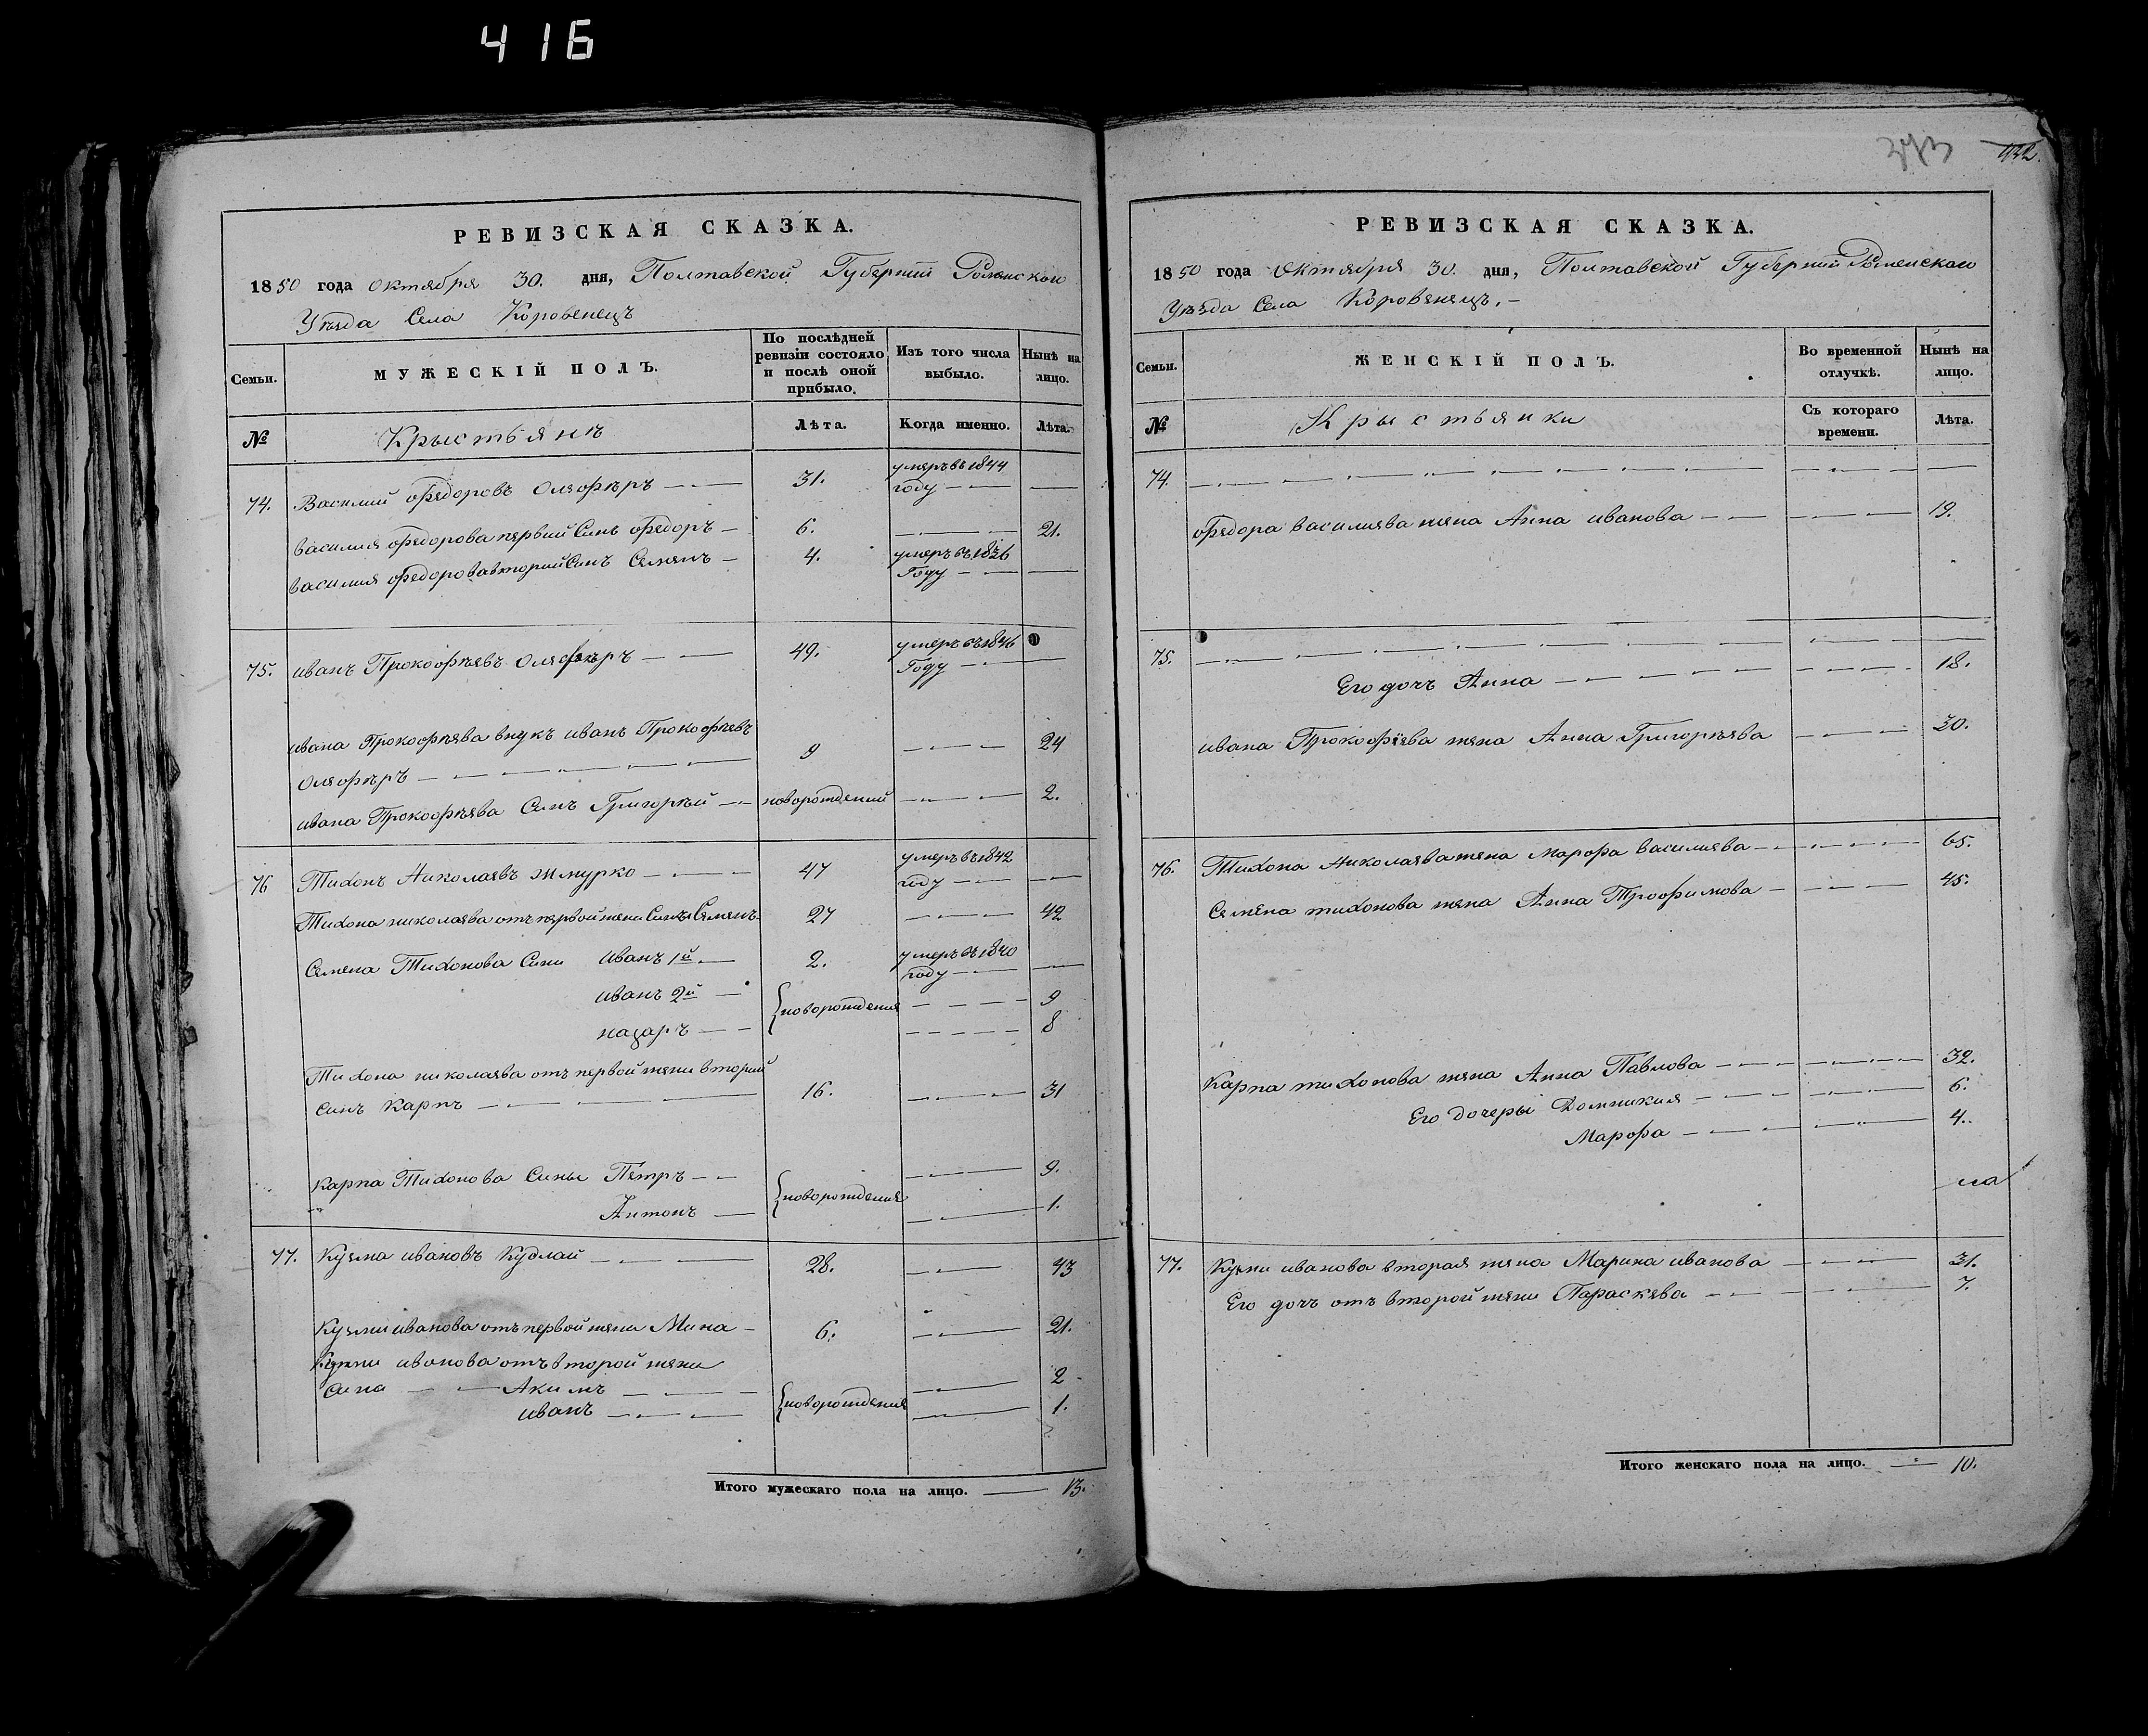 416
РЕВИЗСКАЯ СКАЗКА.
1850 года Октября 30. дня, Полтавской Губерніи Роменского
Уѣзда Села Коровенецъ
Семьи. МУЖЕСКІЙ ПОЛЪ. По послѣдней ревизіи состояло и послѣ оной прибыло. Изъ того числа выбыло. Нынѣ на лицо.
№ Крыстьянѣ Лѣта. Когда именно. Лѣта.
74. Василий Федоровъ Олефѣръ 31. умеръ въ 1844 году
Василия Федорова первий Синъ Федоръ 6. 21.
Василия Федорова вторий Синъ Семенъ 4. умеръ въ 1836 Году
75. иванъ Прокофѣевъ Олефѣръ 49. умеръ въ 1846 Году
ивана Прокофѣева внукъ иванъ Прокофѣевъ
Олефѣръ 9 24
ивана Прокофѣева Синъ Григорѣй новорожденний 2.
76 Тихонъ Николаевъ Жмурко 47 умеръ въ 1842 году
Тихона николаева отъ первой жени Синъ Семенъ 27 42
Семена Тихонова Сини Иванъ 1й 2. умеръ въ 1840 году
иванъ 2й новорождения 9
назаръ 8
Тихона николаева отъ первой жени вторий
Синъ Карпъ 16. 31
Карпа Тихонова Сины Петръ новорождения 9.
Антонъ 1.
77. Кузма ивановъ Кудлай 28. 43
Кузми иванова отъ первой жени Мина 6. 21.
Кузми иванова отъ второй жени
Сина Акимъ новорождения 2
иванъ 1.
Итого мужескаго пола на лицо. 13.
373 432.
РЕВИЗСКАЯ СКАЗКА.
1850 года Октября 30. дня, Полтавской Губерніи Роменского
Уѣзда Села Коровенецъ.
Семьи. ЖЕНСКІЙ ПОЛЪ. Во временной отлучкѣ. Нынѣ на лицо.
№ Крыстьянки Съ котораго времени. Лѣта.
74.
Федора василиева жена Анна иванова 19.
75.
Его дочъ Анна 18.
ивана Прокофѣева жена Анна Григорѣева 30.
76. Тихона Николаева жена Марфа василиева 65.
Семена тихонова жена Анна Трофимова 45.
Карпа тихонова жена Анна Павлова 32.
Его дочеры Домникия 6.
Марфа 4.
77. Кузми иванова вторая жена Марина иванова 31.
Его дочъ отъ второй жени Параскева 7.
Итого женскаго пола на лицо. 10.